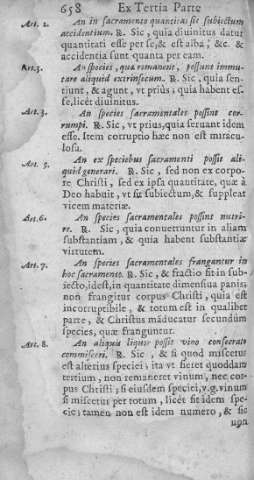 658 Ex Tertia Parte
Art. 2. An in sacramento quantitas sit subiectum
accidentium. R. Sic, quia diuinitus datur
quantitati esse per se, & est alba, &c. &
accidentia sunt quanta per eam.
Art. 3. An species, quæ romanent, possint immu-
tare aliquid extrinsecum. R. Sic, quia sen-
tiunt, & agunt, vt priùs; quia habent es-
se, licèt diuinitus.
Art. 4. An species sacramentales possint cor-
rumpi. R. Sic, vt prius, quia seruant idem
esse. Item corruptio hæc non est miracu-
losa.
Art. 5. An ex speciebus sacramenti possit ali-
quid generari. R. Sic, sed non ex corpo-
re Christi, sed ex ipsa quantitate, quæ à
Deo habuit, vt sit subiectum, & suppleat
vicem materiæ.
Art. 6. An species sacramentales possint nutri-
re. R. Sic, quia conuertuntur in aliam
substantiam, & quia habent substantiæ
virtutem.
Art. 7. An species sacramentales franguntur in
hoc sacramento. R. Sic, & fractio fit in sub-
iecto, idest, in quantitate dimensiua panis;
non frangitur corpus Christi, quia est
incorruptibile, & totum est in qualibet
parte, & Christus māducatur secundùm
species, quæ franguntur.
Art. 8. An aliquis liquor possit vino consecrato
commisceri. R. Sic, & si quod miscetur
est alterius speciei, ita vt fieret quoddam
tertium, non remaneret vinum, nec cor-
pus Christi; si eiusdem speciei, v.g. vinum
si miscetur per totum, licèt sit idem spe-
cie; tamen non est idem numero, & sic
non